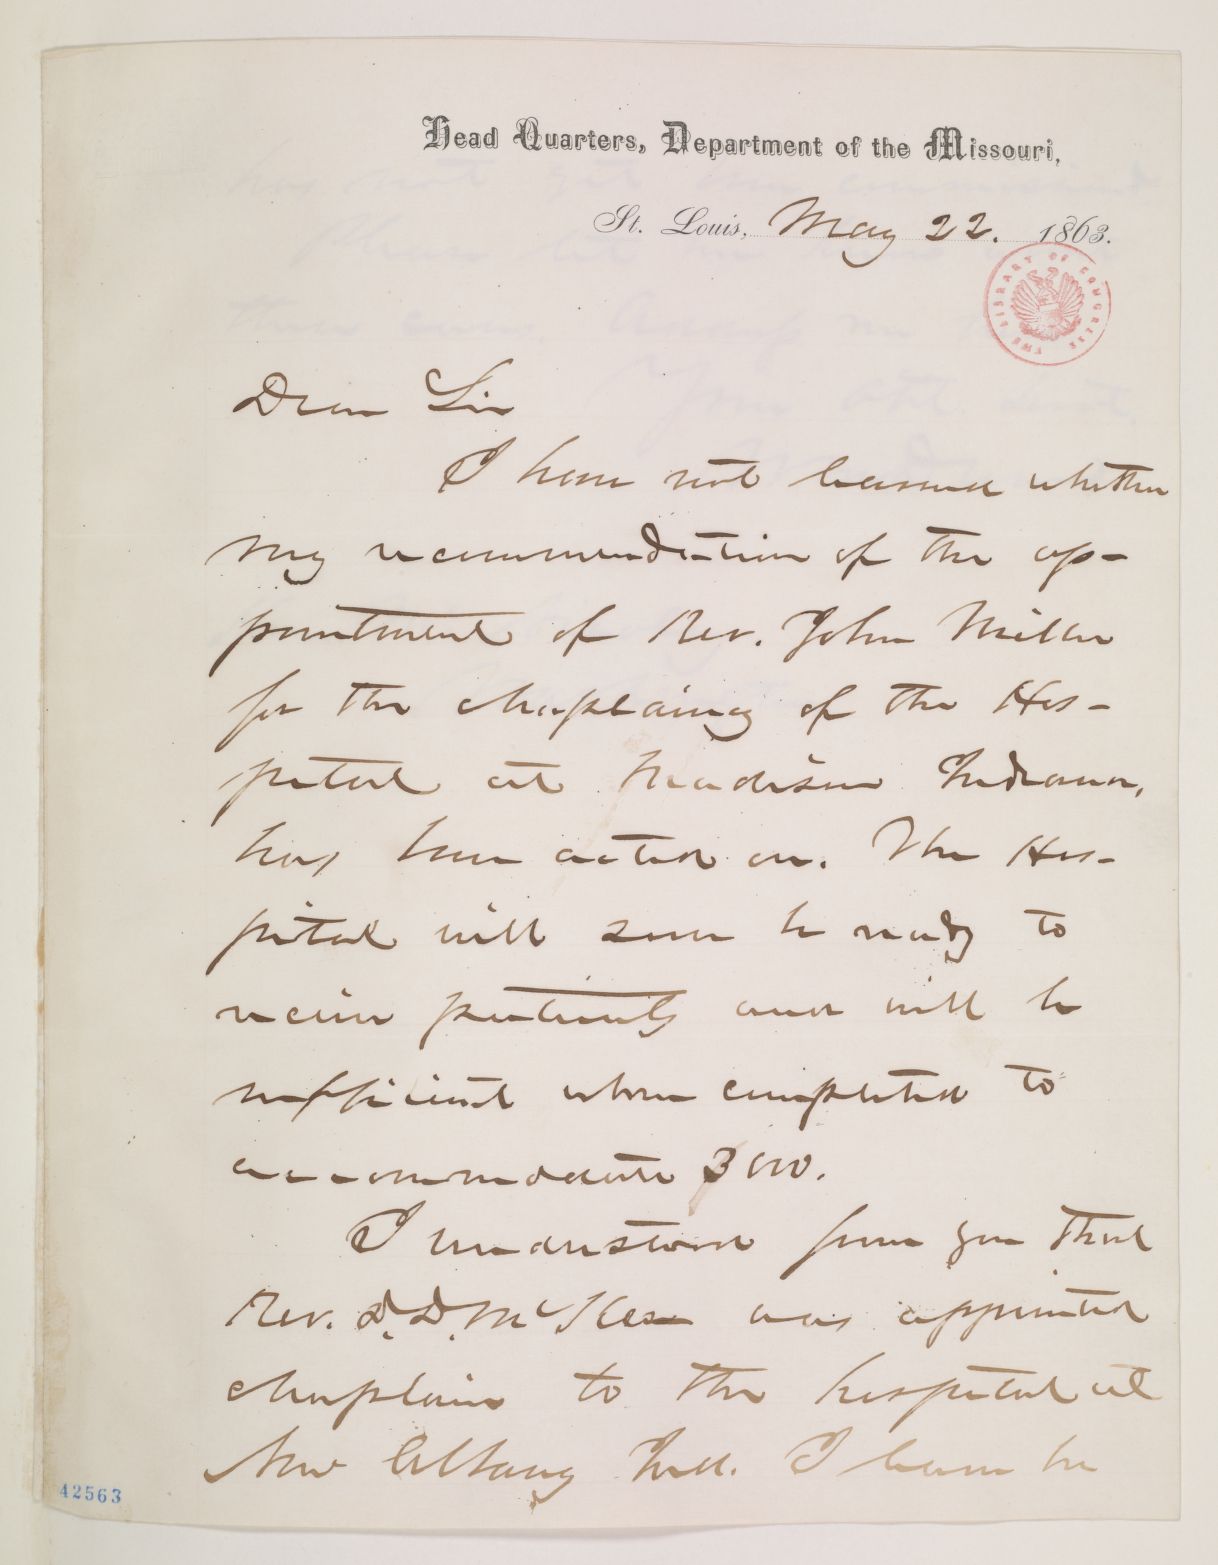 Head Quarters, Department of the Missouri,
St. Louis, May 22. 1863.
THE LIBRARY OF CONGRESS
Dear Sir
I have not learned whether
my recommendation of the ap-
pointment of Rev. John Miller
for the chaplaincy of the Hos-
pital at Madison Indiana,
has been acted on. The Hos-
pital will soon be ready to
receive patients and will be
sufficient when completed to
accommodate 3000.
I understood from you that
Rev. D. D. McKee was appointed
chaplain to the hospital at
New Albany Ind. I learn he
42563